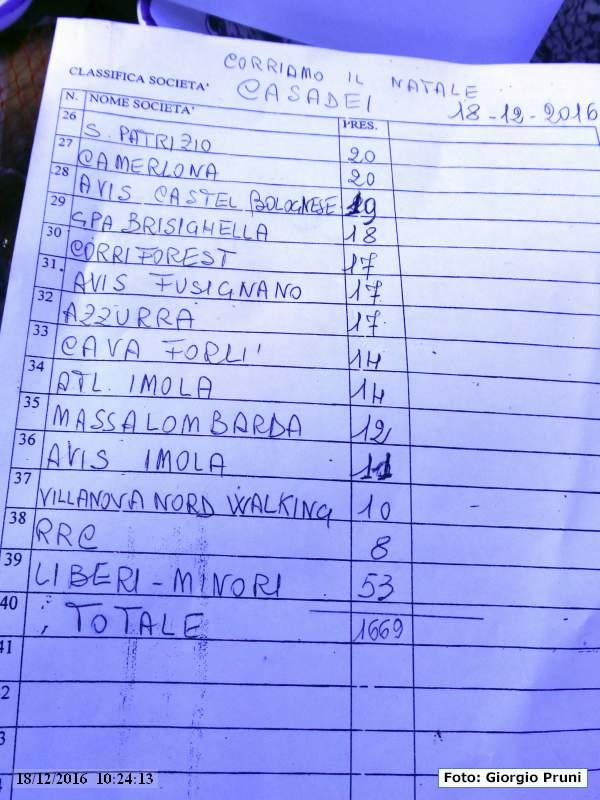 CORRIAMO IL NATALE
CLASSIFICA SOCIETA' CASADEI 18-12-2016
N. NOME SOCIETA' PRES.
26 S. PATRIZIO 20
27 CAMERLONA 20
28 AVIS CASTEL BOLOGNESE 19
29 GPA BRISIGHELLA 18
30 CORRIFOREST 17
31. AVIS FUSIGNANO 17
32 AZZURRA 17
33 CAVA FORLI' 14
34 ATL. IMOLA 14
35 MASSALOMBARDA 12
36 AVIS IMOLA 11
37 VILLANOVA NORD WALKING 10
38 RRC 8
39 LIBERI-MINORI 53
40 ; TOTALE 1669
41
2
3
18/12/2016 10:24:13
Foto: Giorgio Pruni